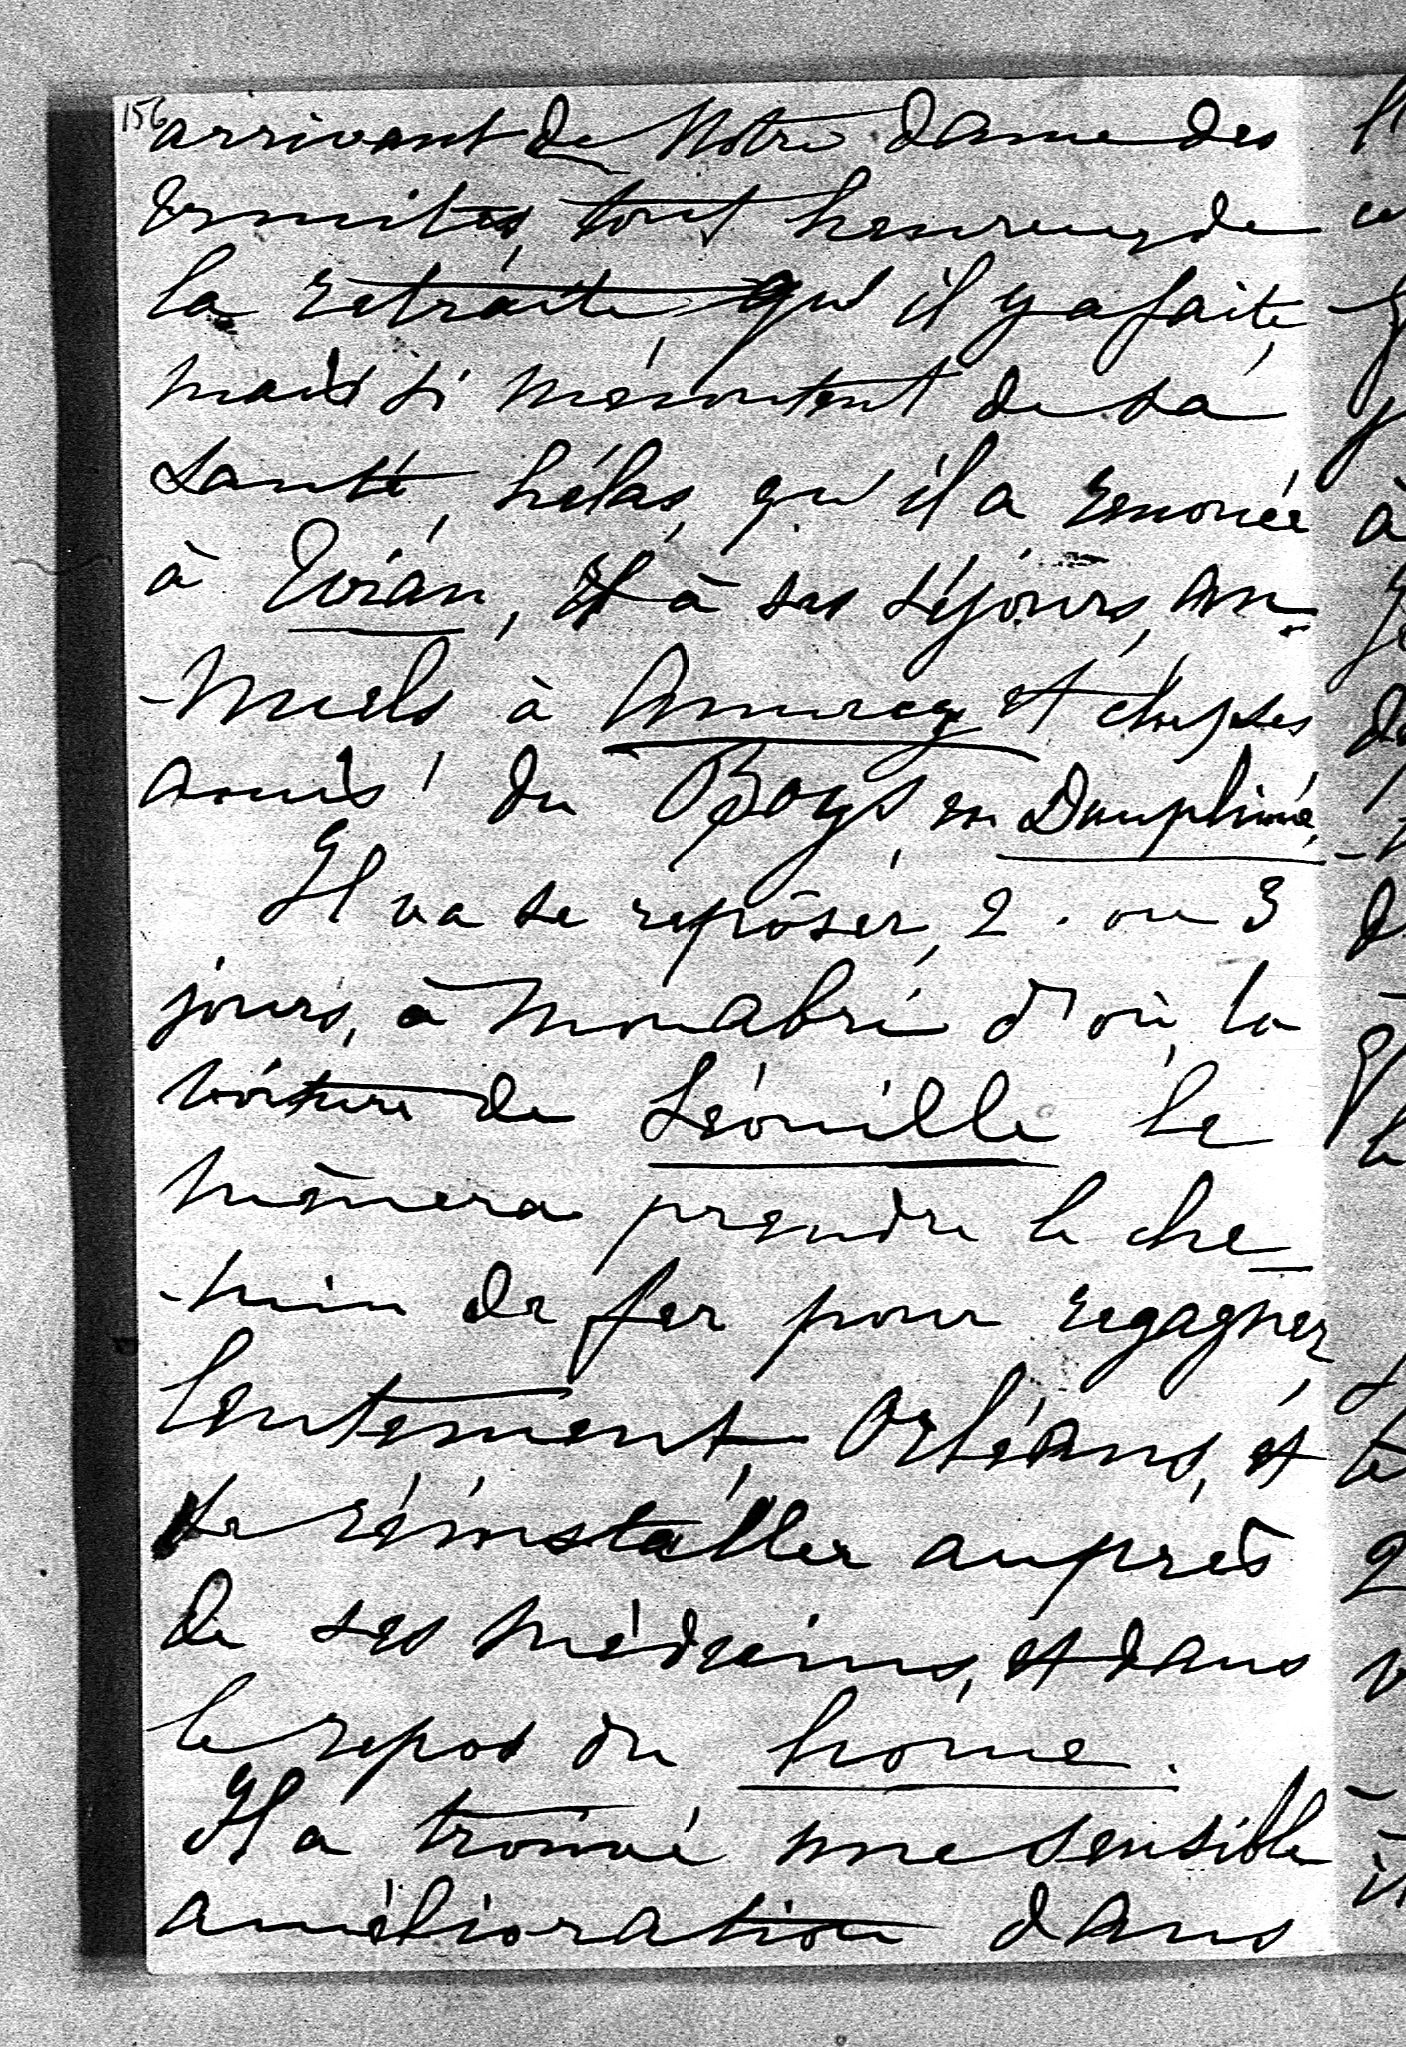 156
arrivant de Notre Dame des
Ermites, tout heureux de
la retraite qu'il y a faite,
mais si mécontent de sa
santé, hélas, qu'il a renoncé
à Evian, et à ses séjours, an-
-nuels à Annecy et chez ses
amis du Boys, en Dauphiné.
Il va se reposer, 2 . ou 3
jours, à Monabri d'où la
voiture de Léouville le
mènera prendre le che-
-min de fer pour regagner,
lentement, Orléans, et
se réinstaller auprès
de ses médecins, et dans
le repos du home.
Il a trouvé une sensible
amélioration dans